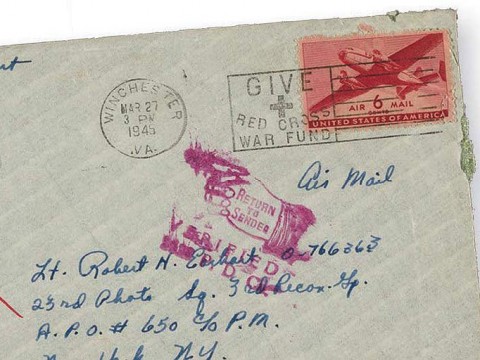 WINCHESTER
MAR 27
3 PM
1945
VA.
GIVE
RED CROSS
WAR FUND
AIR 6 MAIL
UNITED STATES OF AMERICA
Air Mail
RETURN
TO
SENDER
VERIFIED
Lt. Robert H. O-766363
23rd Photo Sq. 3rd Recon. Gp.
A.P.O. # 650 C/o P.M.
New York NY.